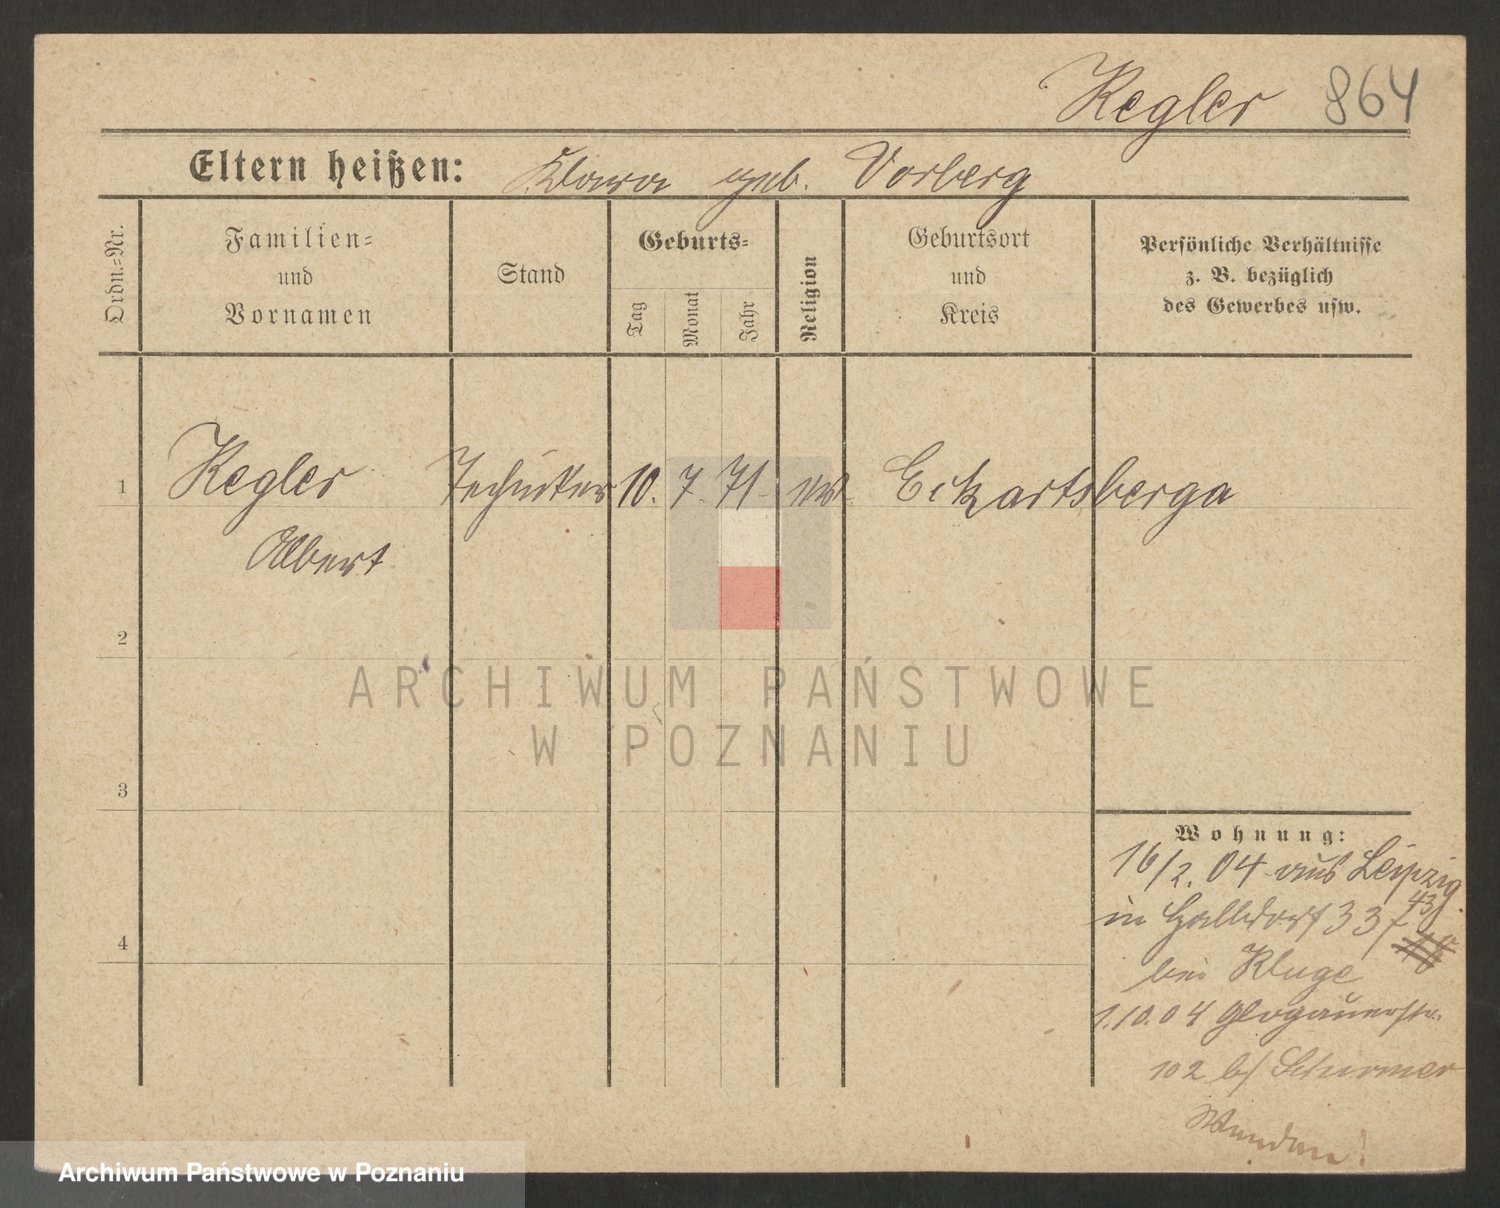 Kegler 864
Eltern heißen: Klara geb. Vorberg
Ordn.-Nr.
Familien-
und
Vornamen
Stand
Geburts-
Tag
Monat
Jahr
Religion
Geburtsort
und
Kreis
Persönliche Verhältnisse
z. B. bezüglich
des Gewerbes usw.
1 Kegler Techniker 10. 7. 71 ev. Eckartsberga
Albert
2
3
4
Wohnung:
16/2. 04 aus Leipzig
in Halldorf 33 43
bei Kluge
1.10.04 Glogauerstr.
102 b/ Schirmer
Wenden!
ARCHIWUM PAŃSTWOWE
W POZNANIU
Archiwum Państwowe w Poznaniu